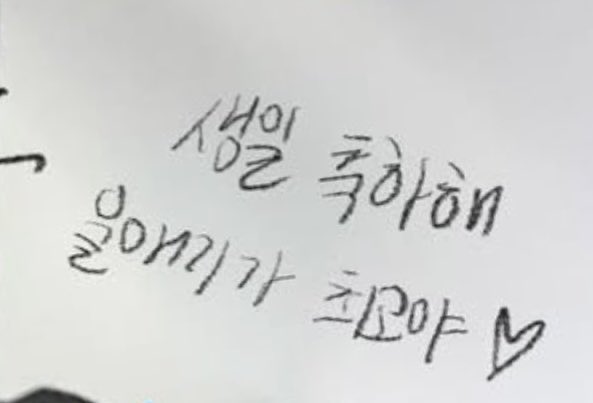 생일 축하해
울애기가 최고야♡